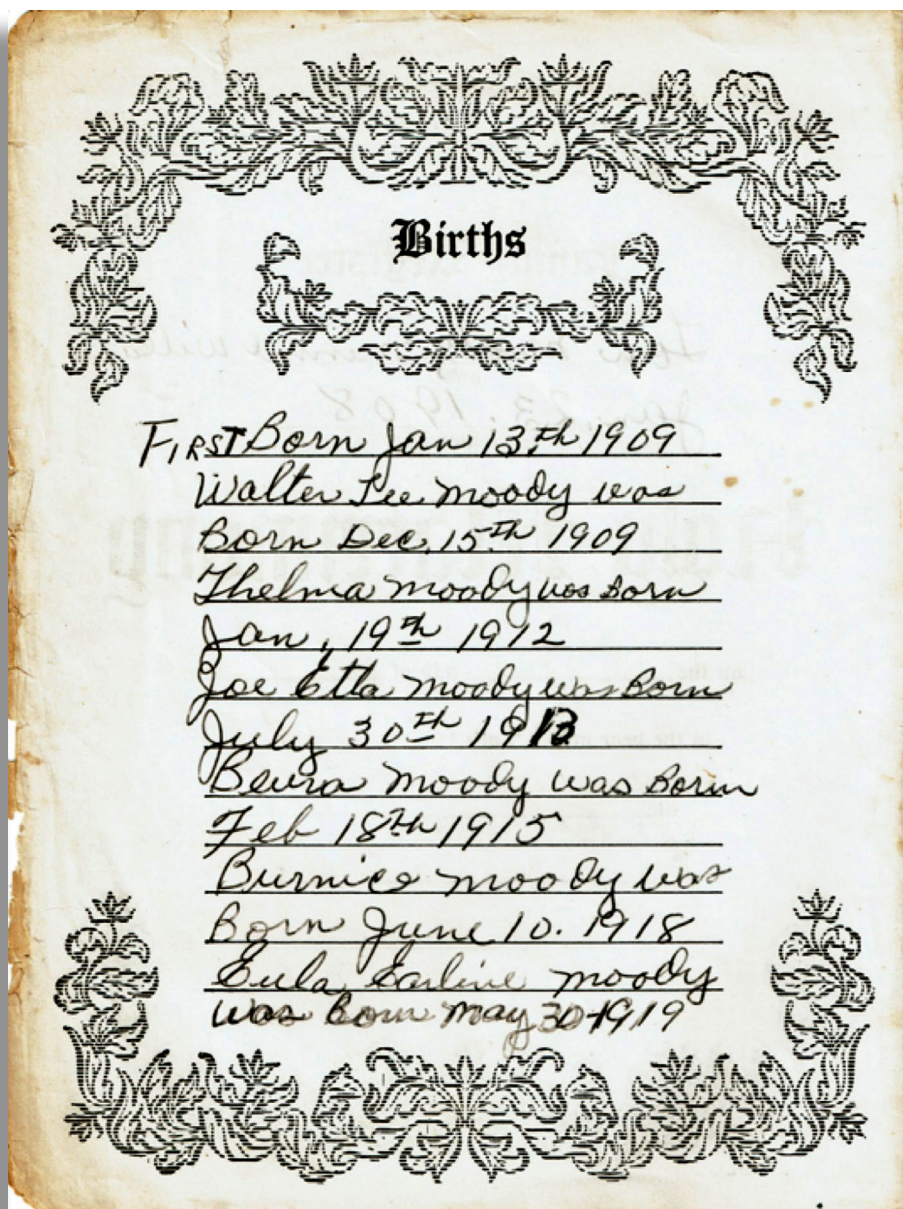 Births
FIRST Born Jan 13th 1909
Walter Lee Moody was
Born Dec. 15th 1909
Thelma Moody was Born
Jan, 19th 1912
Joe Etta Moody was Born
July 30th 1913
Beura Moody was Born
Feb 18th 1915
Burnice Moody was
Born June 10. 1918
Eula Earline Moody
was Born May 30-1919